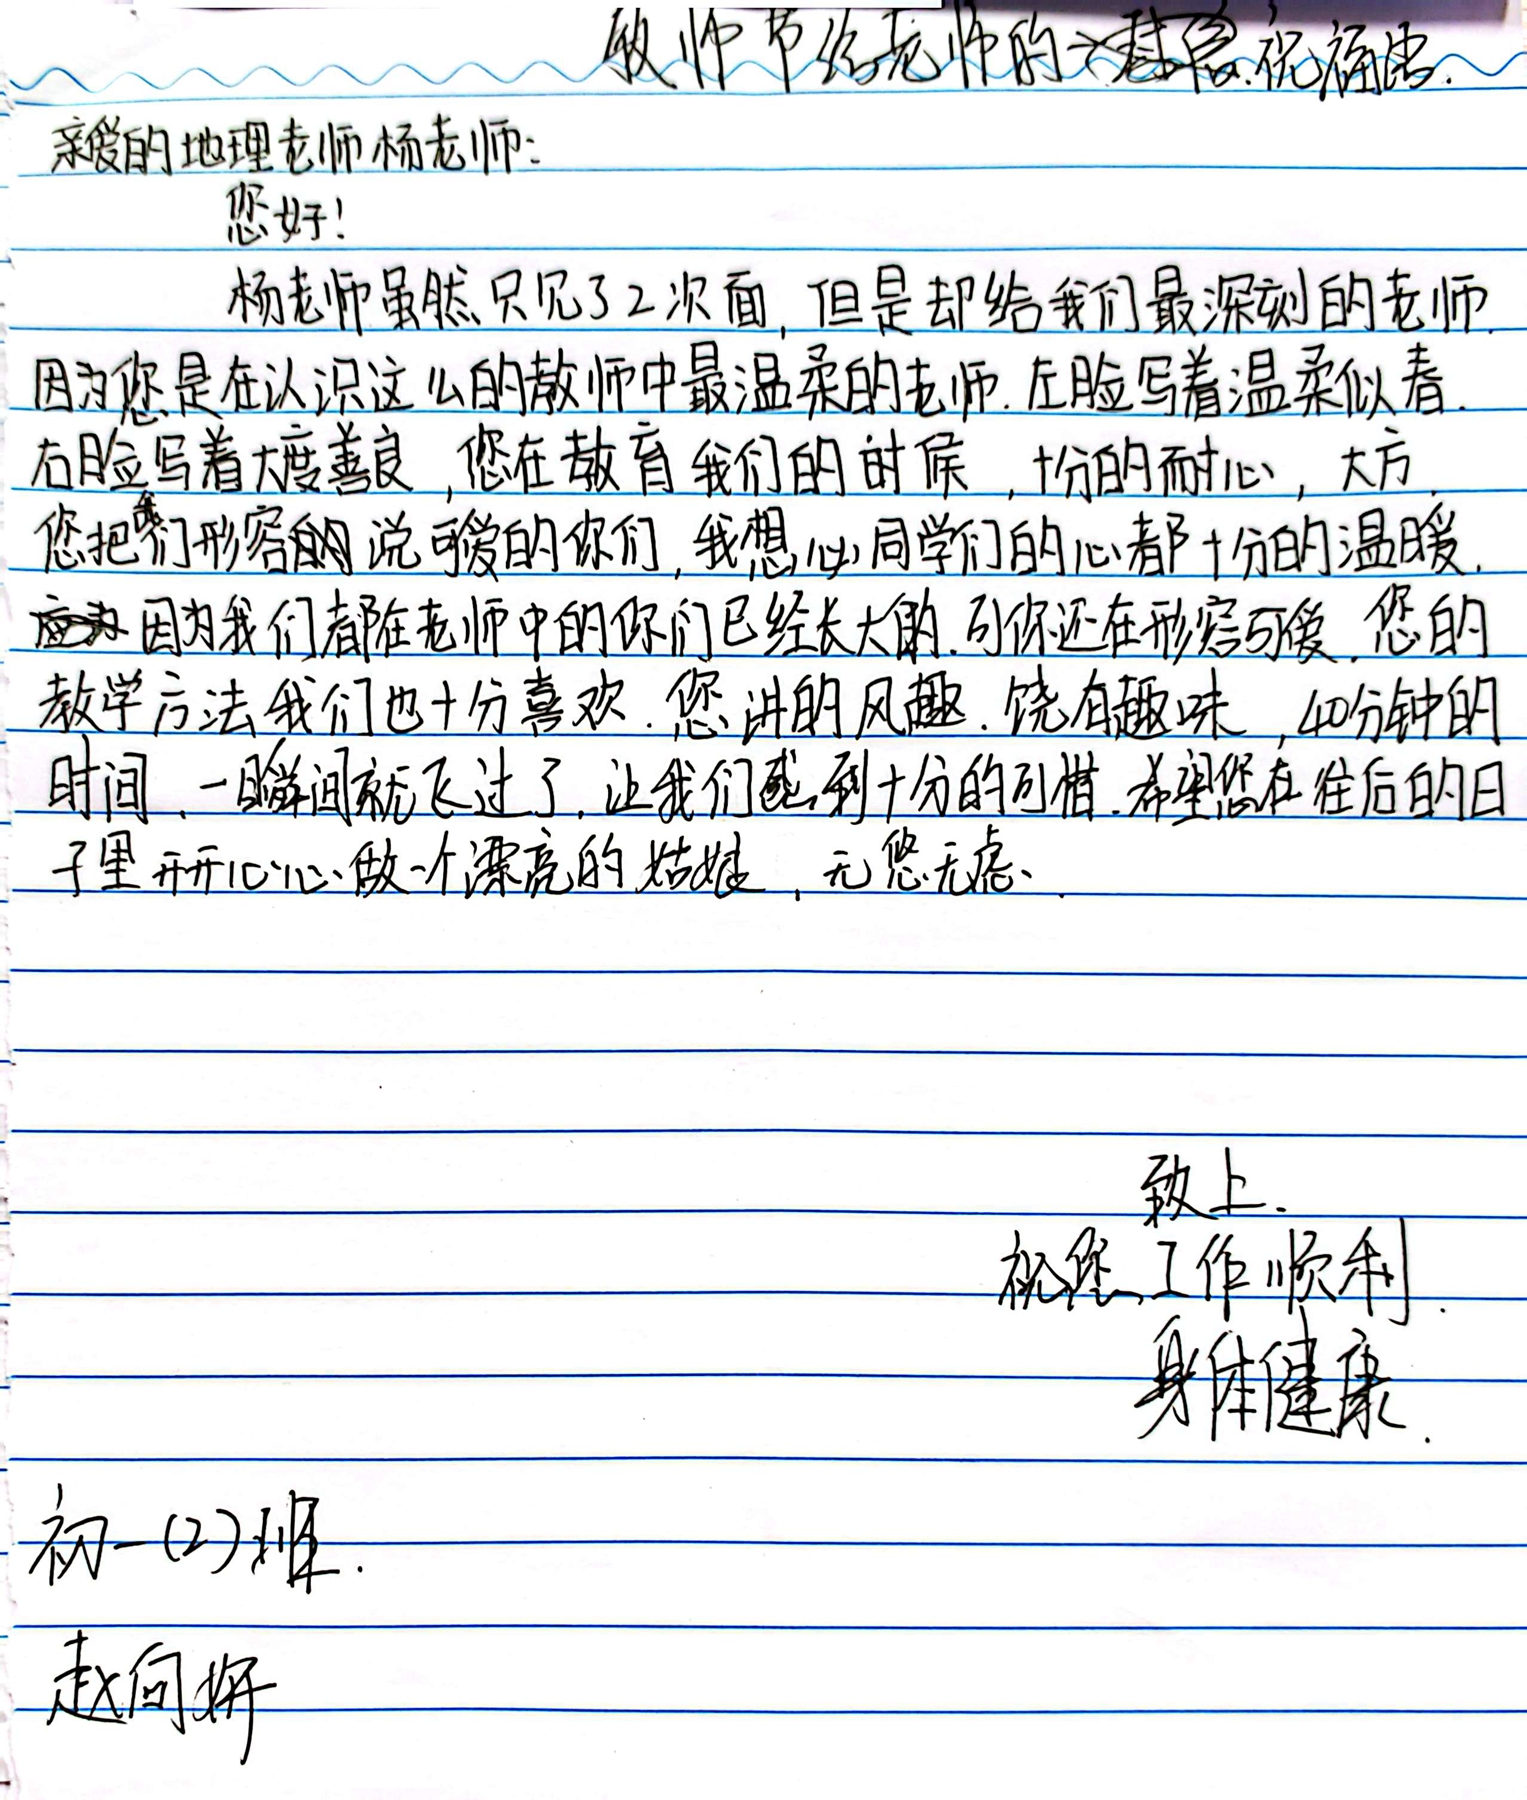 教师节给老师的祝福语.
亲爱的地理老师杨老师:
您好!
杨老师虽然只见了2次面,但是却给我们最深刻的老师.
因为您是在认识这么的教师中最温柔的老师.左脸写着温柔似春.
右脸写着大度善良,您在教育我们的时候,十分的耐心,大方.
您把我们形容的说可爱的你们,我想心同学们的心都十分的温暖.
因为我们都在老师中的你们已经长大的.可你还在形容可爱.您的
教学方法我们也十分喜欢.您讲的风趣.饶有趣味,40分钟的
时间.一瞬间就飞过了.让我们感到十分的可惜.希望您在往后的日
子里开开心心做一个漂亮的姑娘,无悠无虑.
致上.
祝您工作顺利.
身体健康.
初一(2)班.
赵向妍